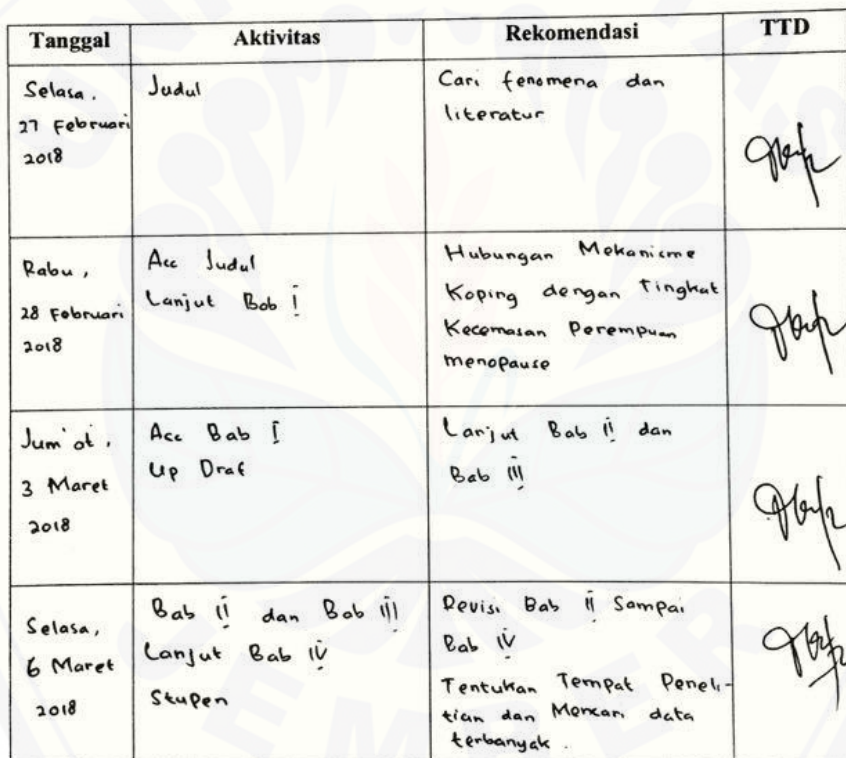 Tanggal Aktivitas Rekomendasi TTD
Selasa,
27 Februari
2018
Judul
Cari fenomena dan
literatur
Rabu,
28 Februari
2018
Acc Judul
Lanjut Bab I
Hubungan Mekanisme
Koping dengan Tingkat
Kecemasan Perempuan
menopause
Jum'at,
3 Maret
2018
Acc Bab I
Up Draf
Lanjut Bab II dan
Bab III
Selasa,
6 Maret
2018
Bab II dan Bab III
Lanjut Bab IV
Stupen
Revisi Bab II Sampai
Bab IV
Tentukan Tempat Peneli-
tian dan Mencari data
terbanyak.
JEMBER